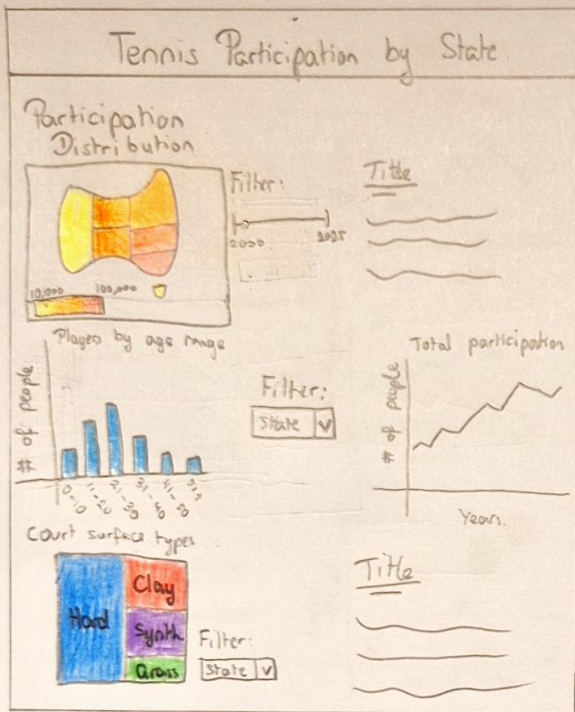 Tennis Participation by State
Participation
Distribution
Filter:
2000
2025
10,000 100,000
Title
Players by age range
# of people
0-10
11-20
21-30
31-40
41-50
51+
Filter:
State
Total participation
# of people
Years.
Court surface types
Hard
Clay
Synth
Grass
Filter:
State
Title